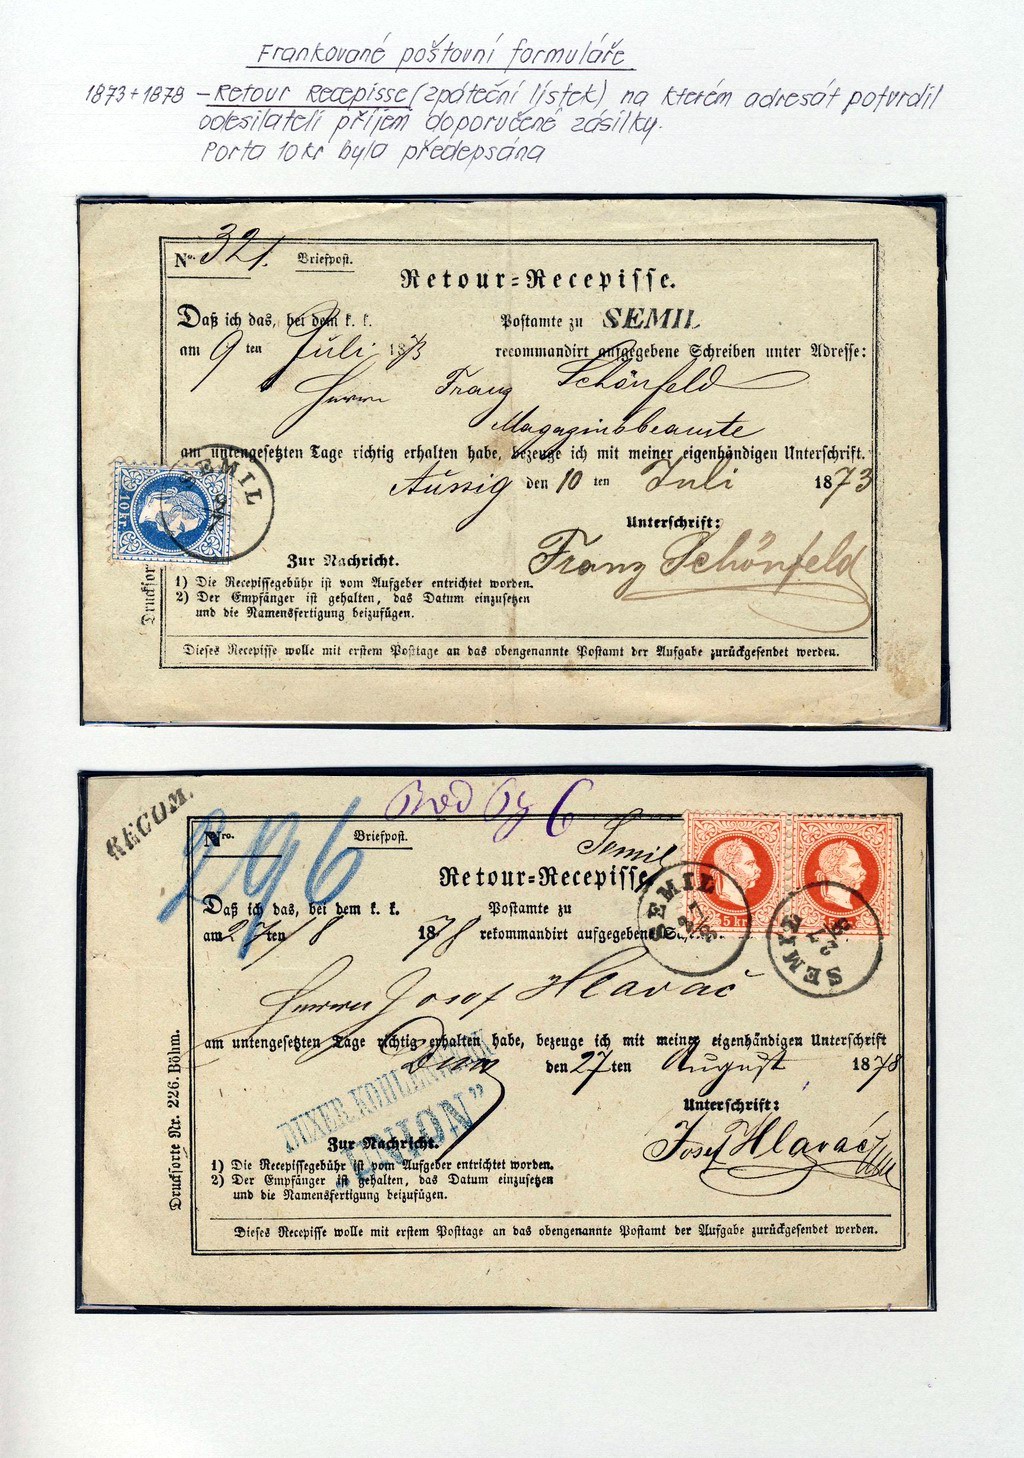 Frankované poštovní formuláře
1873+1878 - Retour Recepisse (zpáteční lístek) na kterém adresát potvrdil
odesílateli příjem doporučené zásilky.
Porta 10 kr byla předepsána
No. 321. Briefpost.
Retour=Recepisse.
Daß ich das, bei dem k. k. Postamte zu SEMIL
am 9 ten Juli 1873 recommandirt aufgegebene Schreiben unter Adresse:
Herrn Franz Schönfeld
Magazinsbeamte
am untengesetzten Tage richtig erhalten habe, bezeuge ich mit meiner eigenhändigen Unterschrift.
Aussig den 10 ten Juli 1873
SEMIL
10 KR
Unterschrift:
Franz Schönfeld
Zur Nachricht.
1) Die Recepissegebühr ist vom Aufgeber entrichtet worden.
2) Der Empfänger ist gehalten, das Datum einzusetzen
und die Namensfertigung beizufügen.
Drucksor
Dieses Recepisse wolle mit erstem Posttage an das obengenannte Postamt der Aufgabe zurückgesendet werden.
RECOM.
296
6
Nro. Briefpost.
Semil
Retour=Recepisse
Daß ich das, bei dem k. k. Postamte zu
am 27 ten /8 1878 rekommandirt aufgegebene
5 kr
SEMIL
27/8
SEMIL
27/8
Herrn Josef Hlavač
am untengesetzten Tage richtig erhalten habe, bezeuge ich mit meiner eigenhändigen Unterschrift
Dux den 27 ten August 1878
DUXER KOHLENVEREIN
„UNION"
Unterschrift:
Josef Hlavač
Zur Nachricht.
1) Die Recepissegebühr ist vom Aufgeber entrichtet worden.
2) Der Empfänger ist gehalten, das Datum einzusetzen
und die Namensfertigung beizufügen.
Drucksorte Nr. 226. Böhm.
Dieses Recepisse wolle mit erstem Posttage an das obengenannte Postamt der Aufgabe zurückgesendet werden.